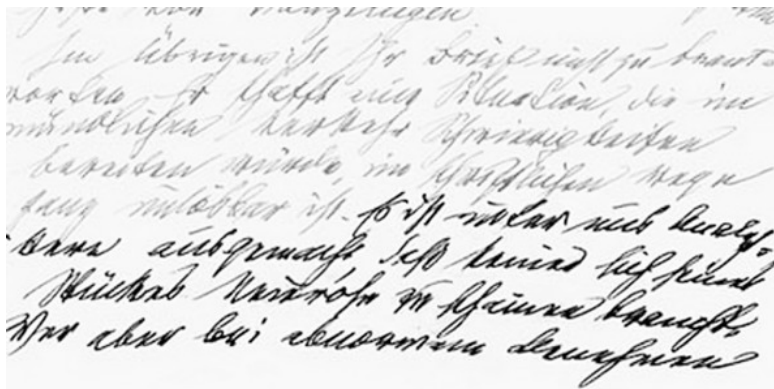 Im Übrigen ist Ihr Brief nicht zu beant-
worten. Er schafft eine Situation, die im
mündlichen Verkehr Schwierigkeiten
bereiten würde, im schriftlichen Wege
ganz unlösbar ist. Es ist unter uns Analy-
tikern ausgemacht daß keiner sich seines
Stückes Neurose zu schämen braucht.
Wer aber bei abnormem Benehmen